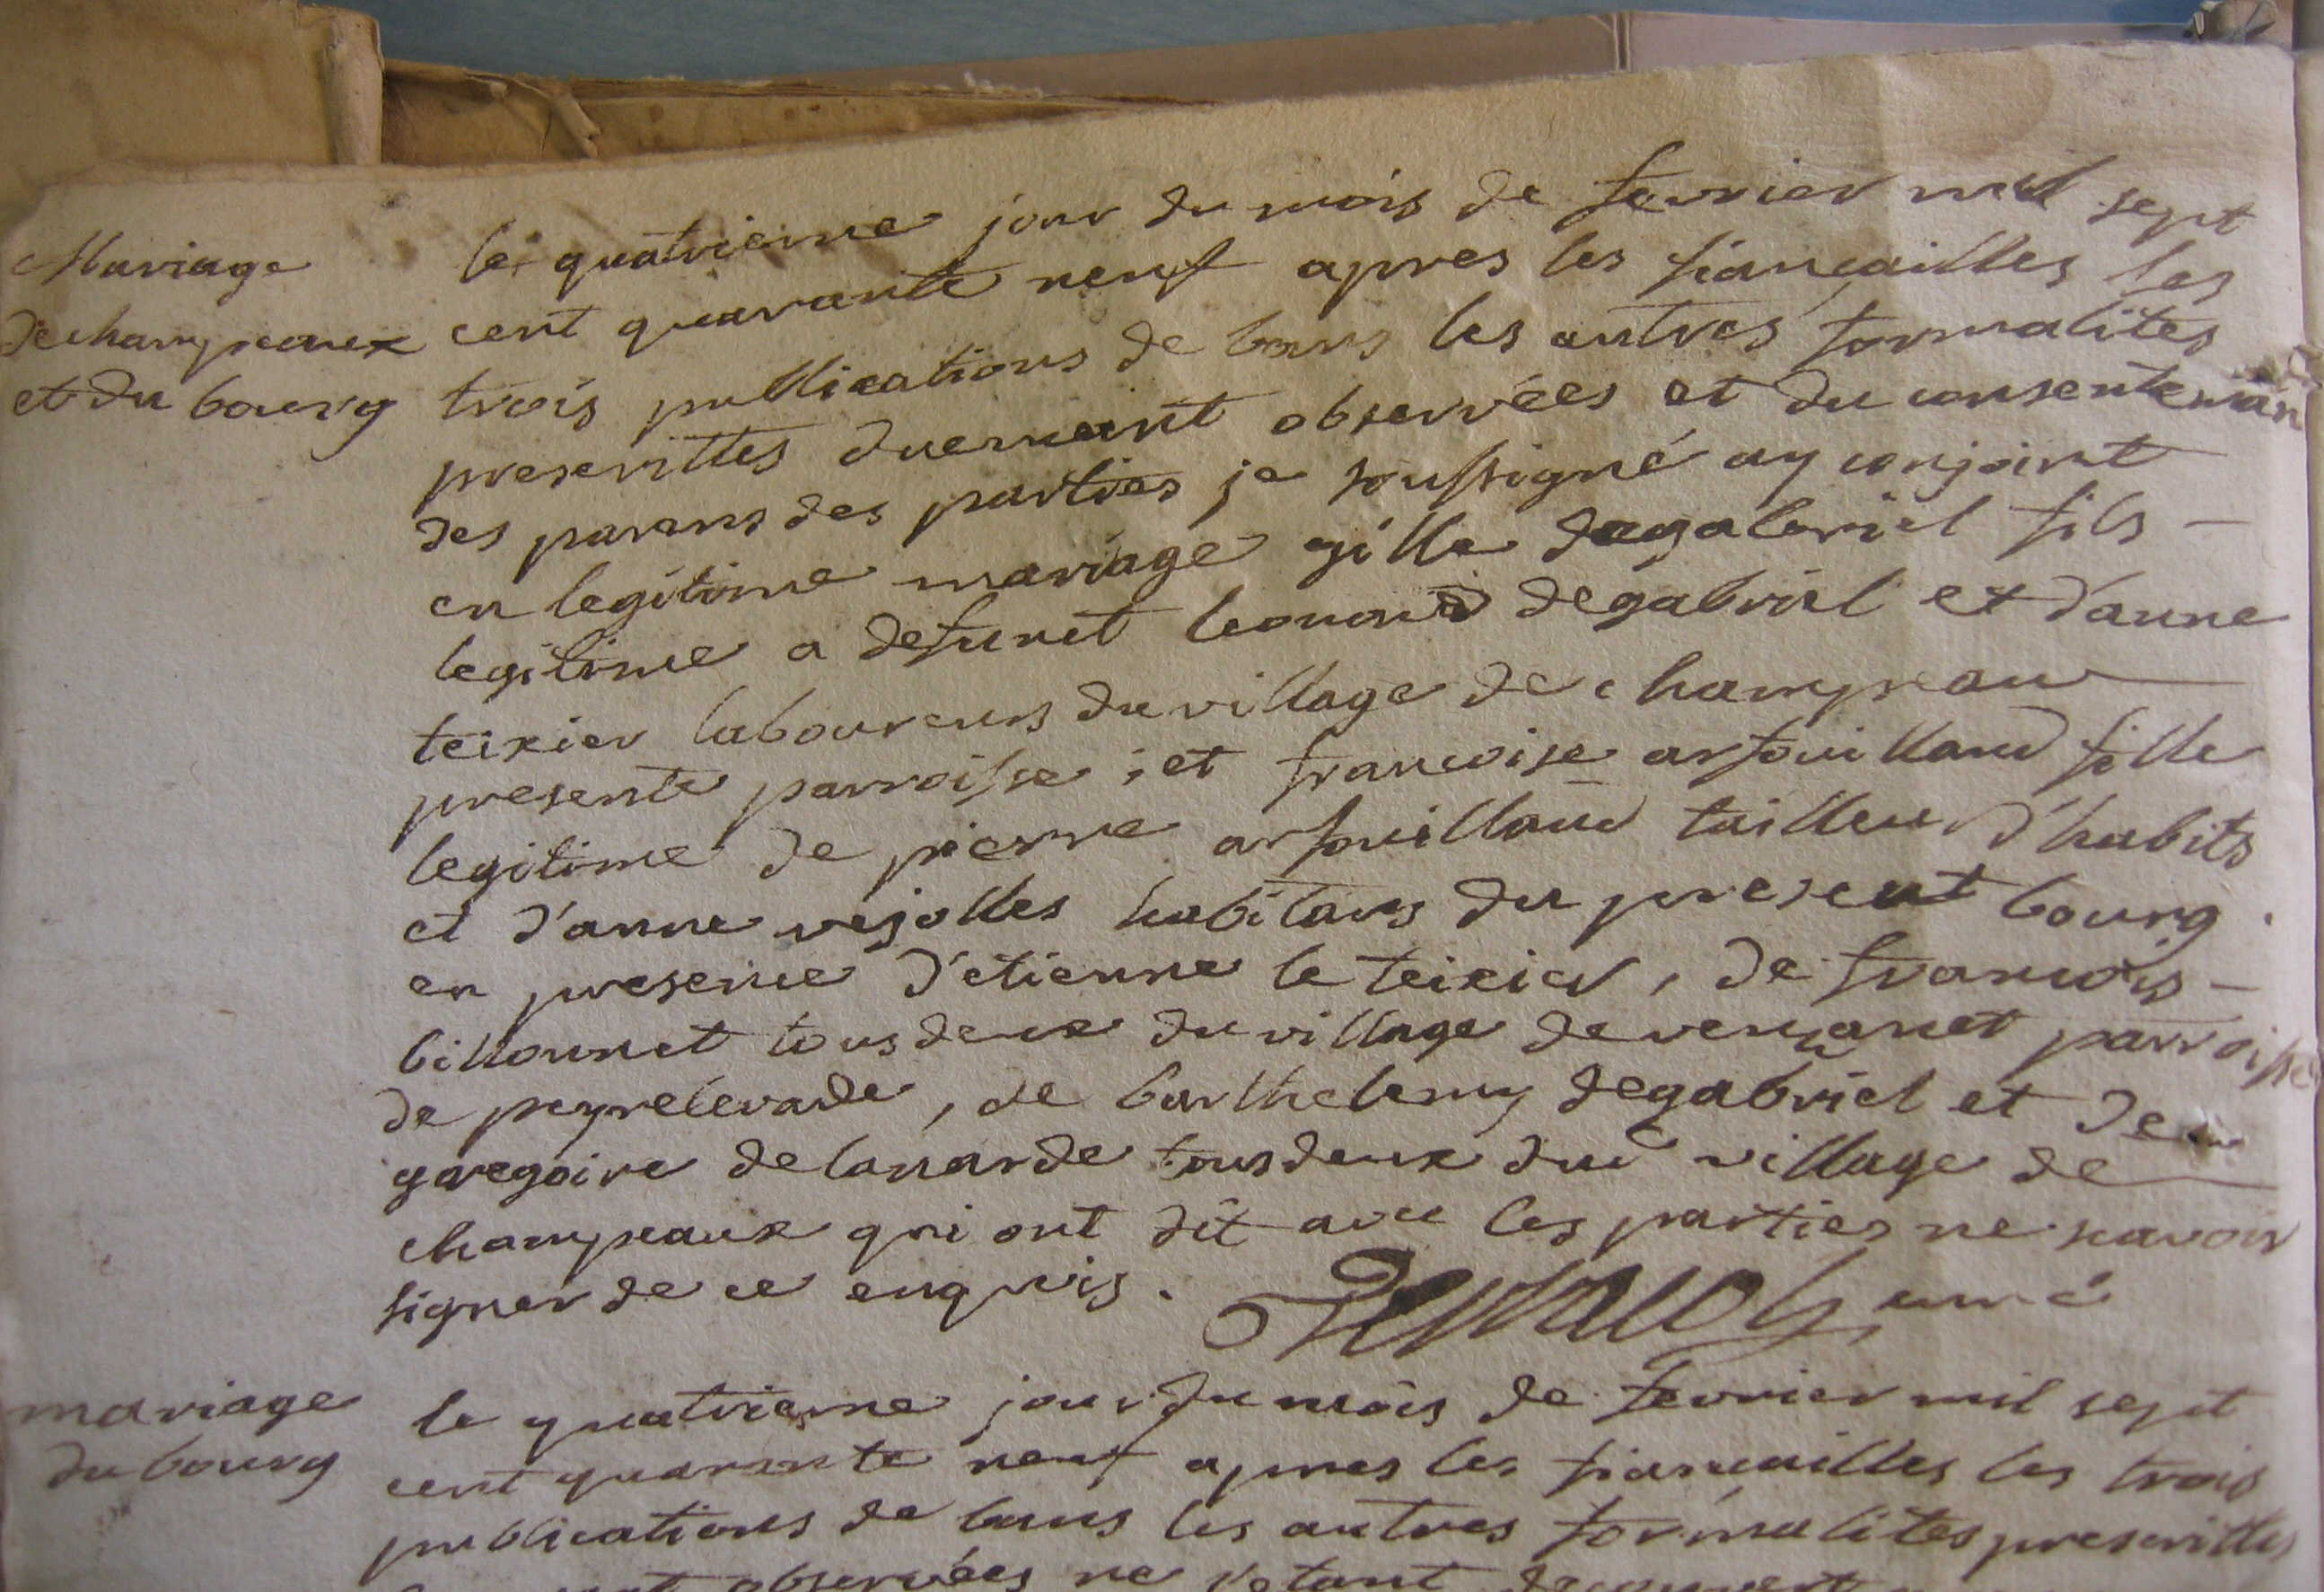 Mariage
dechampeaux
et du bourg
le quatrieme jour du mois de fevrier mil sept
cent quarante neuf apres les fiançailles les
trois publications de bans les autres formalités
prescrittes duement observées et du consenteman
des parans des parties je soussigné ay conjoint
en legitime mariage gille degabriel fils -
legitime a defunct leonard degabriel et d'anne
teixier laboureurs du village de champeau
presente parroisse ; et francoise arfouilland fille
legitime de pierre arfouilland tailleur d'habits
et d'anne vejolles habitans du present bourg .
en presence d'etienne le teixier , de francois -
billounet tous deux du village de parroisse
de peyrelevade , de barthelemy degabriel et de
gregoire delanarde tous deux dud village de
champeaux qui ont dit avec les parties ne scavoir
signer de ce enquis . curé
mariage
du bourg
le quatrieme jour du mois de fevrier mil sept
cent quarante neuf apres les fiancailles les trois
publications de bans les autres formalités prescrittes
observées ne s'etant